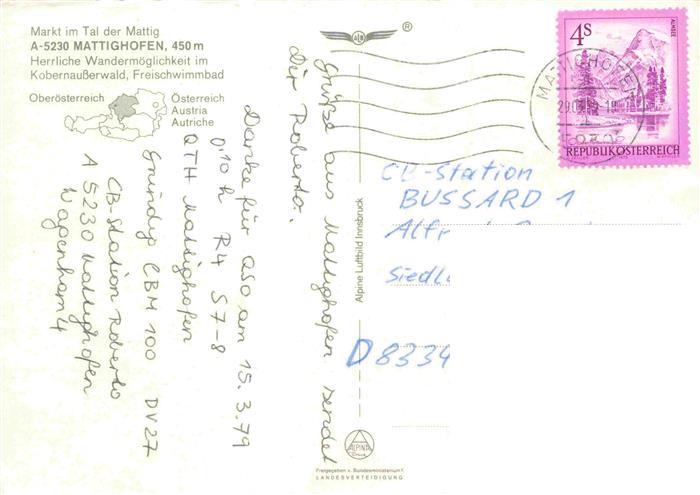 Markt im Tal der Mattig
A-5230 MATTIGHOFEN, 450 m
Herrliche Wandermöglichkeit im
Kobernaußerwald, Freischwimmbad
Oberösterreich
Österreich
Austria
Autriche
Grüße aus Mattighofen sendet
dir Roberto.
Danke für QSO am 15.3.79
0¹⁰ h R4 S7-8
QTH Mattighofen
Grundig CBM 100 DV27
CB-Station Roberto
A 5230 Mattighofen
Wagenham 4
®
Alpine Luftbild Innsbruck
ALPINA
Druck
Freigegeben v. Bundesministerium f.
LANDESVERTEIDIGUNG
4S
ALMSEE
REPUBLIK ÖSTERREICH
MATTIGHOFEN
CB-Station
BUSSARD 1
Alf
Siedl
D 8334